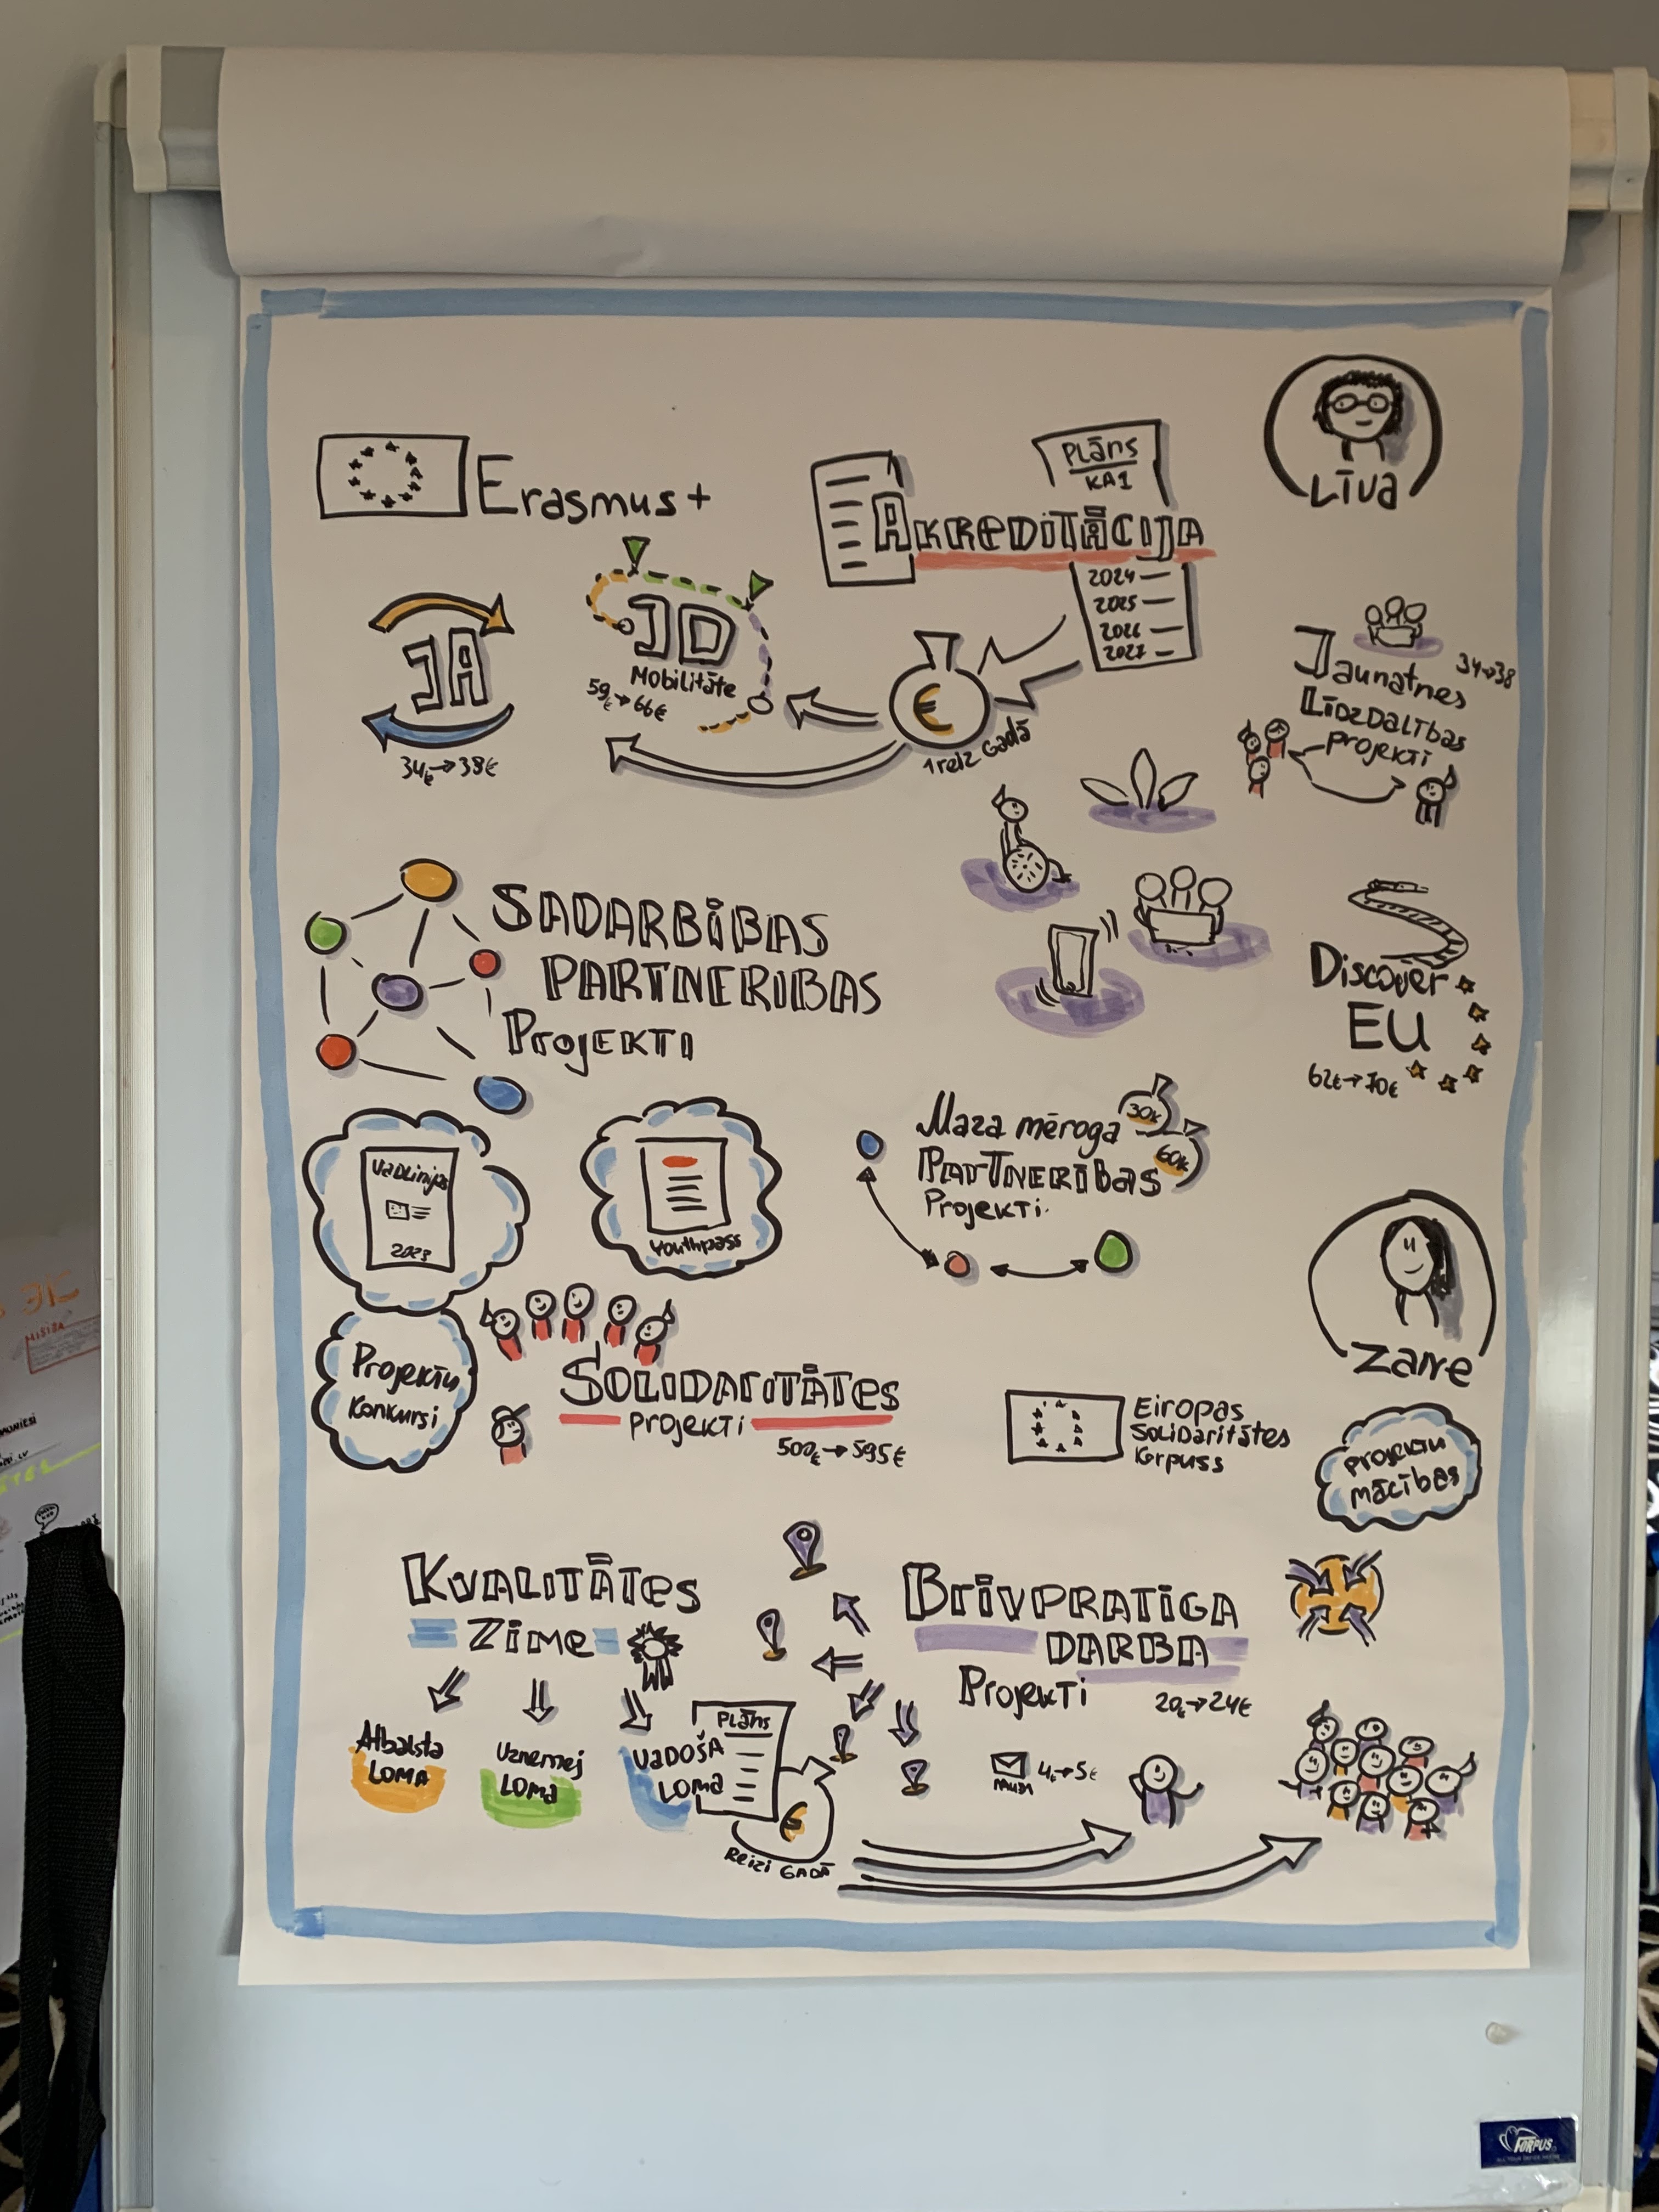 Erasmus+
Plāns
KA1
Akreditācija
2024
2025
2026
2027
Līva
JA
34€→38€
JD
Mobilitāte
59€→66€
€
1 reiz Gadā
Jaunatnes
34→38
Līdzdalības
projekti
Sadarbības
Partnerības
Projekti
Discover
EU
62€→70€
Vadlīnijas
2023
Youthpass
Maza mēroga
30k
Partnerības
60k
Projekti
Zane
Projektu
Konkursi
Solidaritātes
projekti
500€→595€
Eiropas
Solidaritātes
Korpuss
Projektu
mācības
Kvalitātes
Zīme
Brīvprātīgā
Darba
Projekti
20€→24€
Atbalsta
Loma
Uzņemej
Loma
Vadošā
Loma
Plāns
€
Reizi Gadā
4€→5€
FORPUS